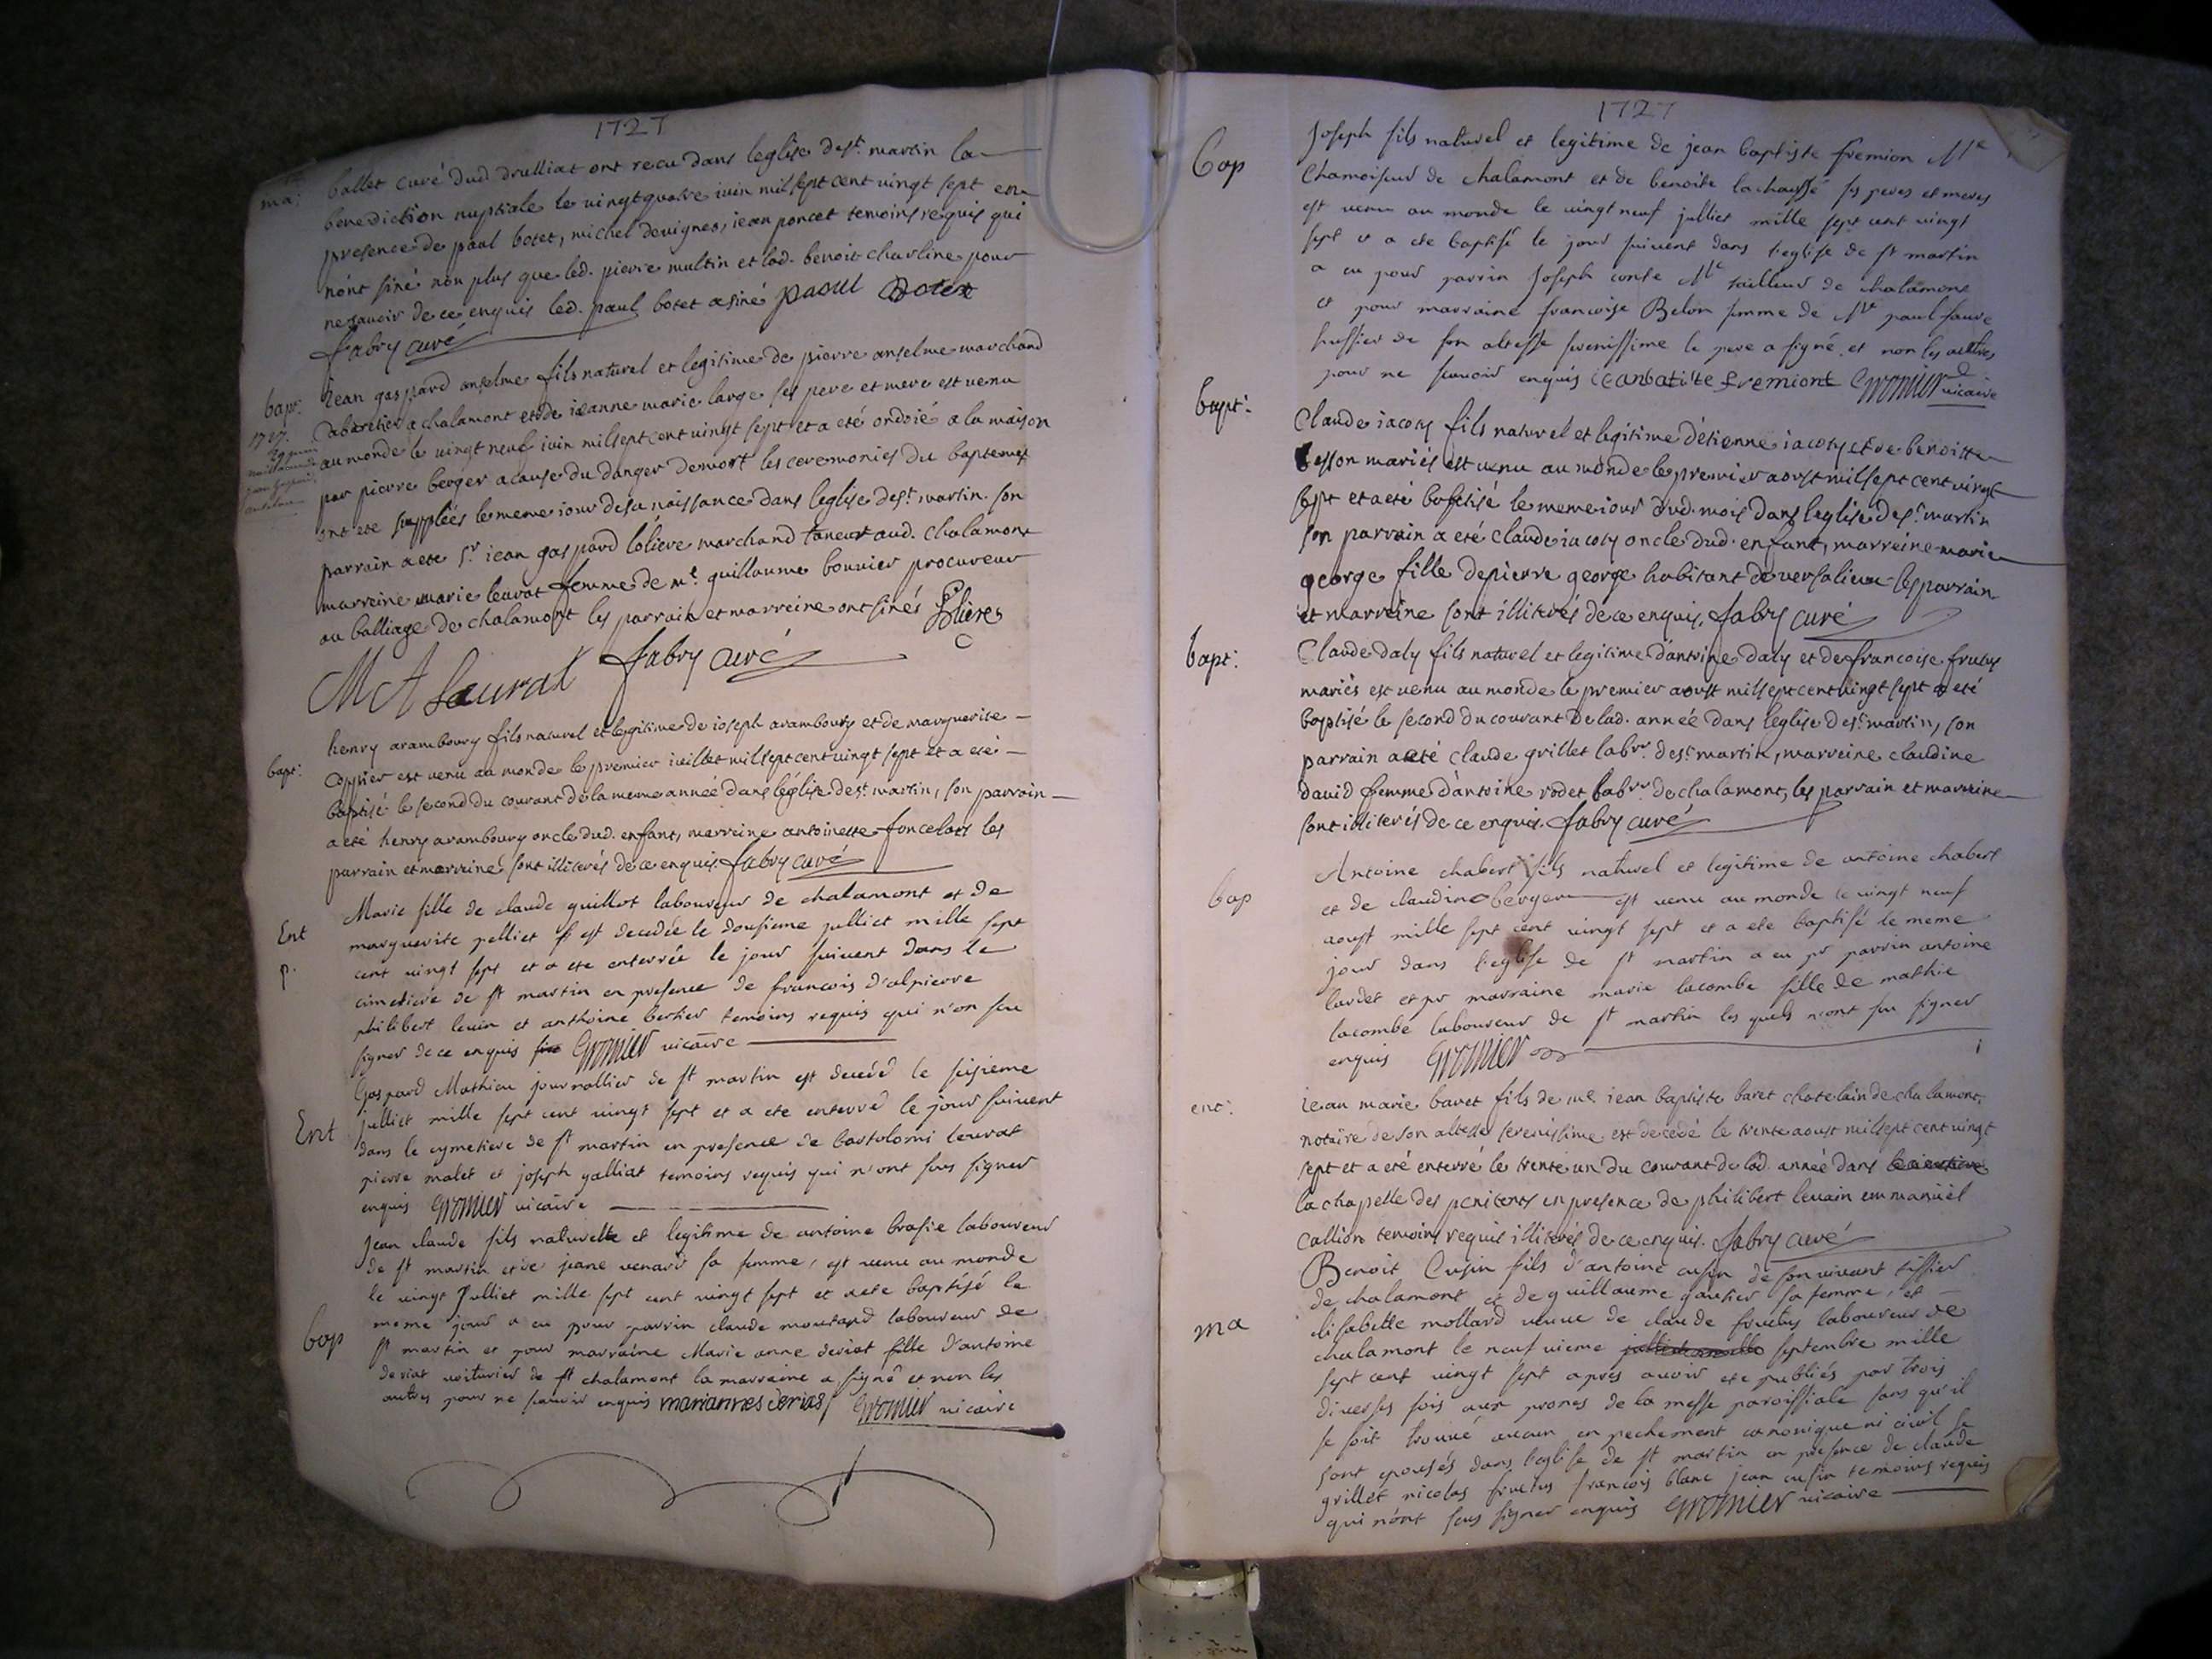 1727
ma:
ballet curé dud. drulliat ont recu dans leglise de st. martin la
benediction nuptiale le vingtquatre iuin mil sept cent vingt sept en
presence de paul botet, michel devignes, iean poncet temoins requis qui
nónt siné non plus que led. pierre multin et lad. benoit charline pour
ne savoir de ce enquis led. paul botet a siné paoul botet
fabry curé
bapt:
1727.
29 juin
Iean gaspard anselme fils naturel et legitime de pierre anselme marchand
Cabaretier a chalamont et de ieanne marie large ses pere et mere est venu
au monde le vingt neuf iuin mil sept cent vingt sept et a eté ondoié a la maison
par pierre berger a cause du danger de mort les ceremonies du baptemes
ont ete supplées le meme iour de sa naissance dans leglise de st. martin. son
parrain a ete sr. iean gaspard loliere marchand taneur aud. chalamont
marreine marie leurat femme de me. guillaume bouvier procureur
au balliage de chalamont les parrain et marreine ont sinés Loliere
M A Leurat fabry curé
bapt:
henry arambourg fils naturel et legitime de ioseph arambourg et de marguerite
Coppier est venu au monde le premier iuillet mil sept cent vingt sept et a eté
baptisé le second du courant de la meme année dans léglise de st. martin, son parrain
a eté henry arambourg oncle dud. enfant, marreine antoinette foncelars les
parrain et marreine sont illiterés de ce enquis. fabry curé
Ent
p.
Marie fille de claude guillot laboureur de chalamont et de
marguerite pelliet est decedée le dousieme julliet mille sept
cent vingt sept et a ete enterrée le jour suivent dans le
cimetiere de st martin en presence de francois d'alpierre
philibert levin et anthoine bertier temoins requis qui n'on seu
signer de ce enquis Gromier vicaire
Ent
Gaspard Mathieu journallier de st martin est decedé le seisieme
julliet mille sept cent vingt sept et a ete enterré le jour suivent
dans le cymetiere de st martin en presence de bartolomi leurat
pierre malet et joseph galliat temoins requis qui n'ont seus signer
enquis Gromier vicaire
bap
Jean claude fils naturelle et legitime de antoine brasie laboureur
de st martin et de jeane venard sa femme, est venu au monde
le vingt Julliet mille sept cent vingt sept et a ete baptisé le
meme jour a eu pour parrin claude moutard laboureur de
st martin et pour marraine Marie anne deriat fille d'antoine
deriat voiturier de st chalamont la marraine a signé et non les
autres pour ne scavoir enquis mariannes derias Gromier vicaire
1727
bap
Joseph fils naturel et legitime de jean baptiste fremion Mte
Chamoiseur de chalamont et de benoite lachaussé ses peres et meres
est venu au monde le vingt neuf julliet mille sept cent vingt
sept et a ete baptisé le jour suivent dans l'eglise de st martin
a eu pour parrin Joseph conte Mte tailleur de chalamont
et pour marraine francoise Belon femme de Mre paul faure
huissier de son altesse serenissime le pere a signé et non les aultres
pour ne scavoir enquis ieanbatiste fremiont Gromier vicaire
bapt:
Claude iacoty fils naturel et legitime détienne iacoty et de benoitte
besson mariés est venu au monde le premier aoust mil sept cent vingt
sept et a eté baptisé le meme iour dud. mois dans leglise de st. martin
son parrain a eté claude iacoty oncle dud. enfant, marreine marie
george fille de pierre george habitant de versalieux les parrain
et marreine sont illiterés de ce enquis. fabry curé
bapt:
Claude daly fils naturel et legitime dántoine daly et de francoise frutus
mariés est venu au monde le premier aoust mil sept cent vingt sept a eté
baptisé le second du courant de lad. année dans leglise de st. martin, son
parrain a eté claude grillet labr. de st. martin, marreine claudine
david femme dántoine rodet labr. de chalamont, les parrain et marreine
sont illiterés de ce enquis. fabry curé
bap
Antoine chabert fils naturel et legitime de antoine chabert
et de claudine berger est venu au monde le vingt neuf
aoust mille sept cent vingt sept et a ete baptisé le meme
jour dans l'eglise de st martin a eu pr parrin antoine
lardet et pr marraine marie lacombe fille de mathie
lacombe laboureur de st martin les quels n'ont seu signer
enquis Gromier
ent:
iean marie baret fils de me iean baptiste baret chatelain de chalamont,
notaire de son altesse serenissime est decedé le trente aoust mil sept cent vingt
sept et a eté enterré le trente un du courant de lad. année dans
la chapelle des penitents en presence de philibert levain emmanüel
callion temoins requis illiterés de ce enquis. fabry curé
ma
Benoit Cusin fils d'antoine cusin de son vivant tissier
de chalamont et de guillaume gautier sa femme, et
elisabette mollard veuve de claude fructus laboureur de
chalamont le neuf vieme septembre mille
sept cent vingt sept apres avoir ete publiés par trois
diverses fois aux prones de la messe paroissiale sans qu'il
se soit trouvé aucun en pechement canonique ni civil se
sont epousés dans l'eglise de st martin en presence de claude
grillet nicolas fructus francois blanc jean cusin temoins requis
qui n'ont seus signer enquis Gromier vicaire